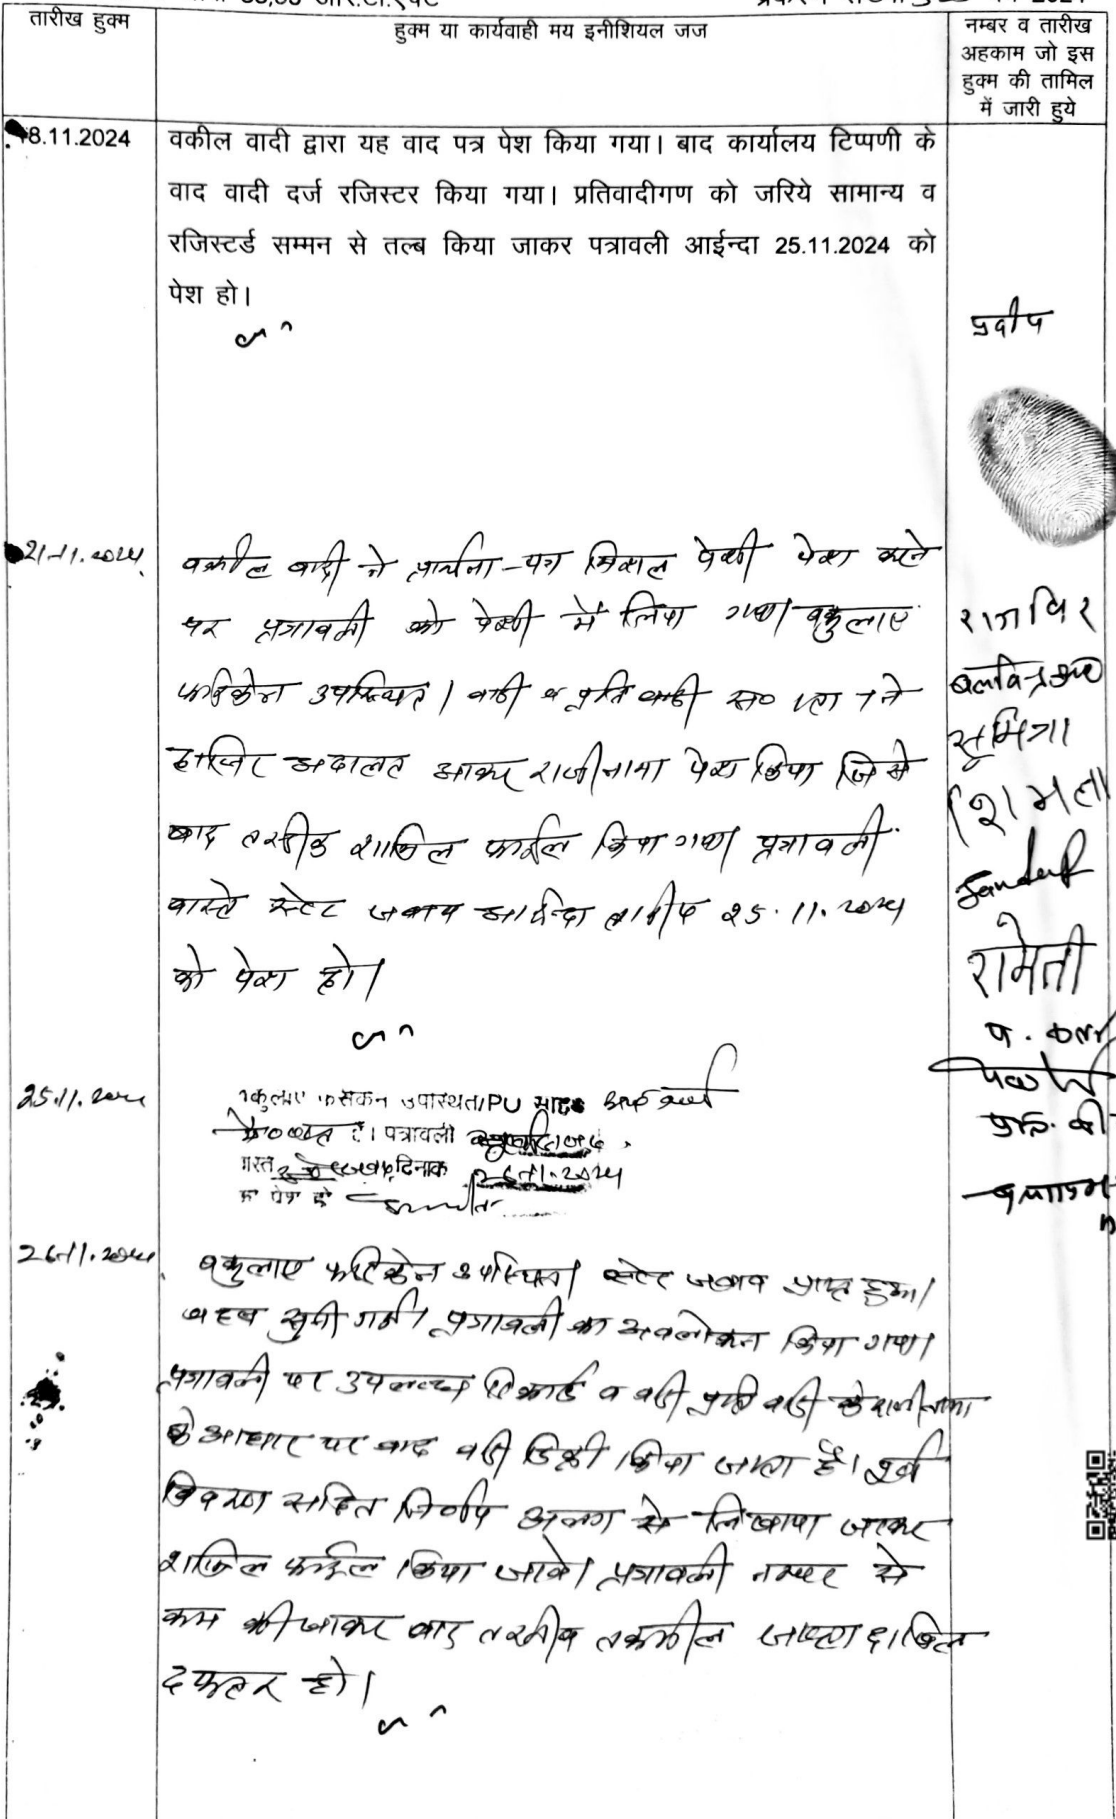 तारीख हुक्म
हुक्म या कार्यवाही मय इनीशियल जज
नम्बर व तारीख
अहकाम जो इस
हुक्म की तामिल
में जारी हुये
8.11.2024
वकील वादी द्वारा यह वाद पत्र पेश किया गया। बाद कार्यालय टिप्पणी के
वाद वादी दर्ज रजिस्टर किया गया। प्रतिवादीगण को जरिये सामान्य व
रजिस्टर्ड सम्मन से तल्ब किया जाकर पत्रावली आईन्दा 25.11.2024 को
पेश हो।
प्रदीप
21.11.2024
वकील वादी ने प्रार्थना-पत्र मिसल पेशी पेश करने
पर पत्रावली को पेशी में लिया गया। वकुलाए
फरिकेन उपस्थित। वादी व प्रतिवादी स० 1 ता 7 ने
हाजिर अदालत आकर राजीनामा पेश किया जिसे
बाद तस्दीक शामिल फाईल किया गया। पत्रावली
वास्ते स्टेट जवाब आईन्दा तारीख 25.11.2024
को पेश हो।
राजविर
सुमित्रा
रामेती
25.11.2024
उपस्थित। PU
है। पत्रावली
दिनांक 26.11.2024
को पेश हो
26.11.2024
वकुलाए फरिकेन उपस्थित। स्टेट जवाब प्राप्त हुआ।
बहस सुनी गई। पत्रावली का अवलोकन किया गया।
पत्रावली पर उपलब्ध रिकार्ड व वादी प्रतिवादी के राजीनामा
के आधार पर वाद वादी डिक्री किया जाता है। पूर्ण
विवरण सहित निर्णय अलग से लिखाया जाकर
शामिल फाईल किया जावे। पत्रावली नम्बर से
कम की जाकर बाद तरतीब तकमील जाब्ता दाखिल
दफ्तर हो।